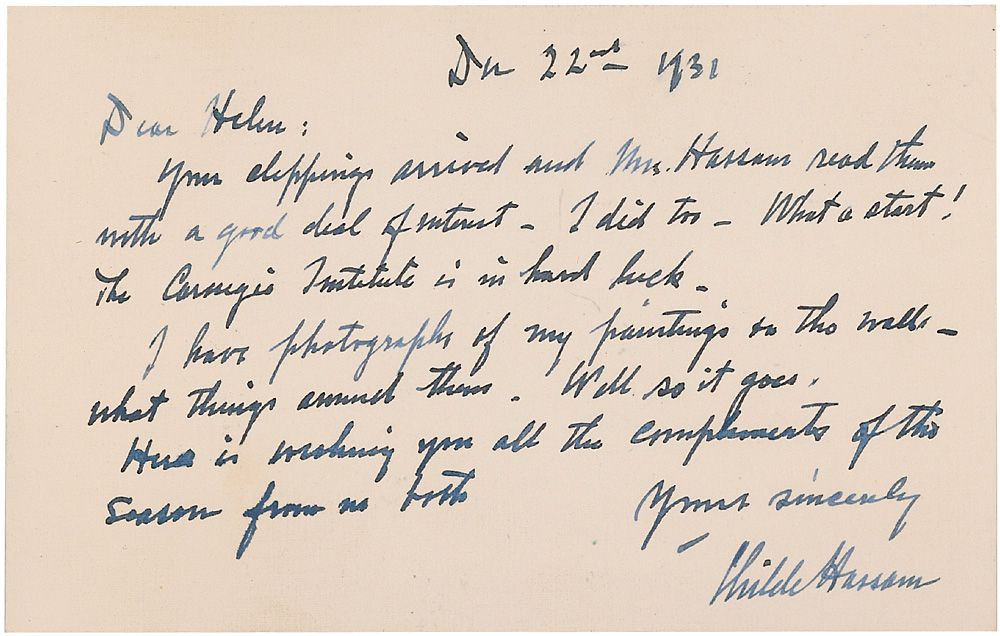 Dec 22nd 1931
Dear Helen:
Your clippings arrived and Mrs. Hassam read them
with a good deal of interest – I did too – What a start!
The Carnegie Institute is in hard luck –
I have photographs of my paintings on the walls –
what things around them – Well so it goes.
Here is wishing you all the compliments of the
season from us both
Yours sincerely
Childe Hassam